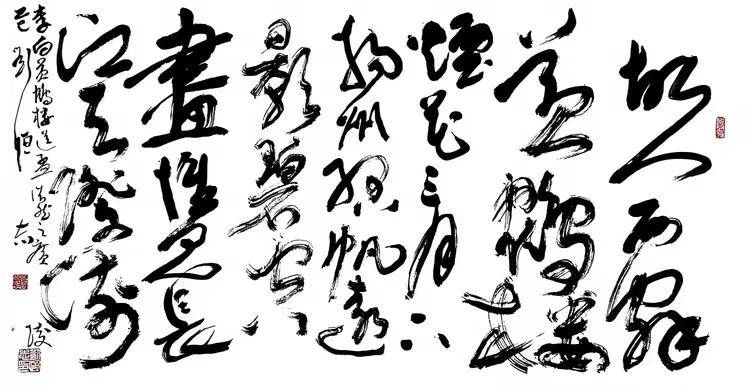 故人西辭
黃鶴樓
煙花三月下
揚州孤帆遠
影碧空
盡惟見長
江天際流
李白黃鶴樓送孟浩然之廣陵